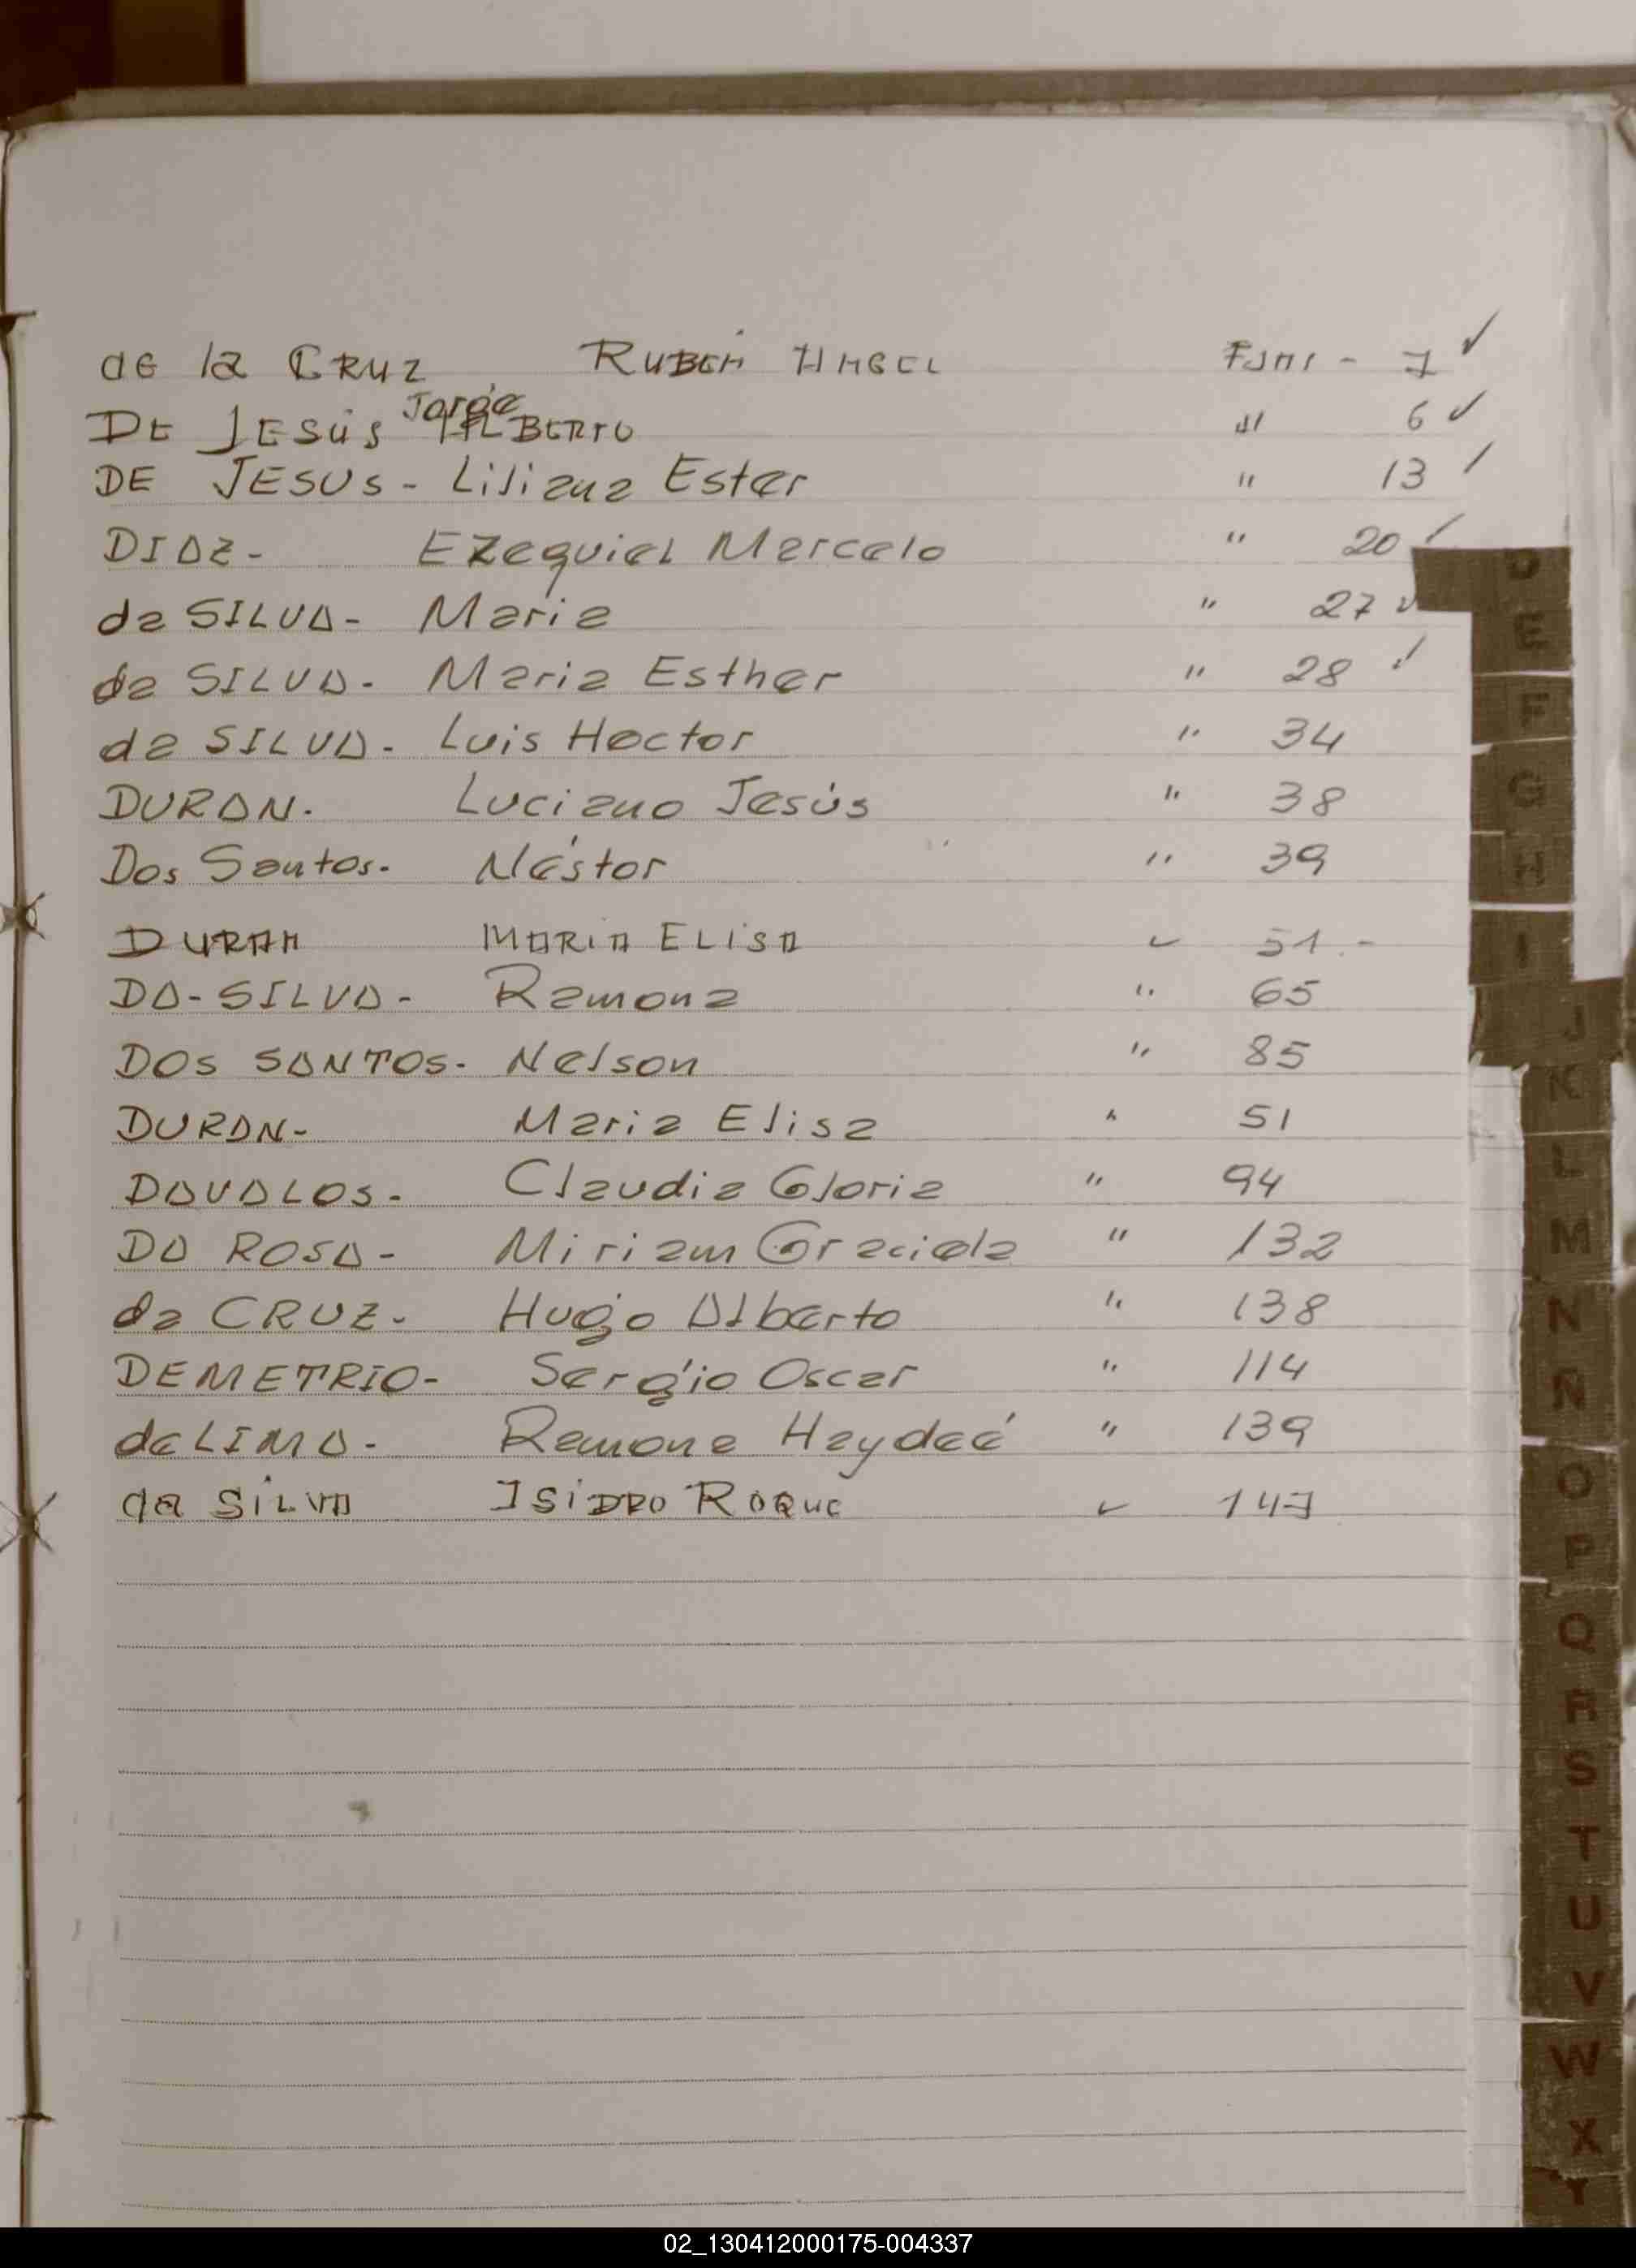 de la CRUZ RUBEN ANGEL Fans - 7 ✓
DE JESús Jorge ALBERTO " 6 ✓
DE JESUS - Liliana Ester " 13 ✓
DIAZ - Ezequiel Marcelo " 20 ✓
da SILVA - Maria " 27 ✓
da SILVA - Maria Esther " 28 ✓
da SILVA - Luis Hector " 34
DURAN. Luciano Jesús " 38
Dos Santos. Néstor " 39
DURAN MARIA ELISA " 51.-
DA-SILVA - Ramona " 65
DOS SANTOS. Nelson " 85
DURAN - Maria Elisa " 51
DAVALOS. Claudia Gloria " 94
DA ROSA - Miriam Graciela " 132
da CRUZ. Hugo Alberto " 138
DEMETRIO - Sergio Oscar " 114
de LIMA. Ramona Haydeé " 139
da SILVA ISIDRO ROQUE " 147
D
E
F
G
H
I
J
K
L
M
N
N
O
P
Q
R
S
T
U
V
W
X
Y
02_130412000175-004337